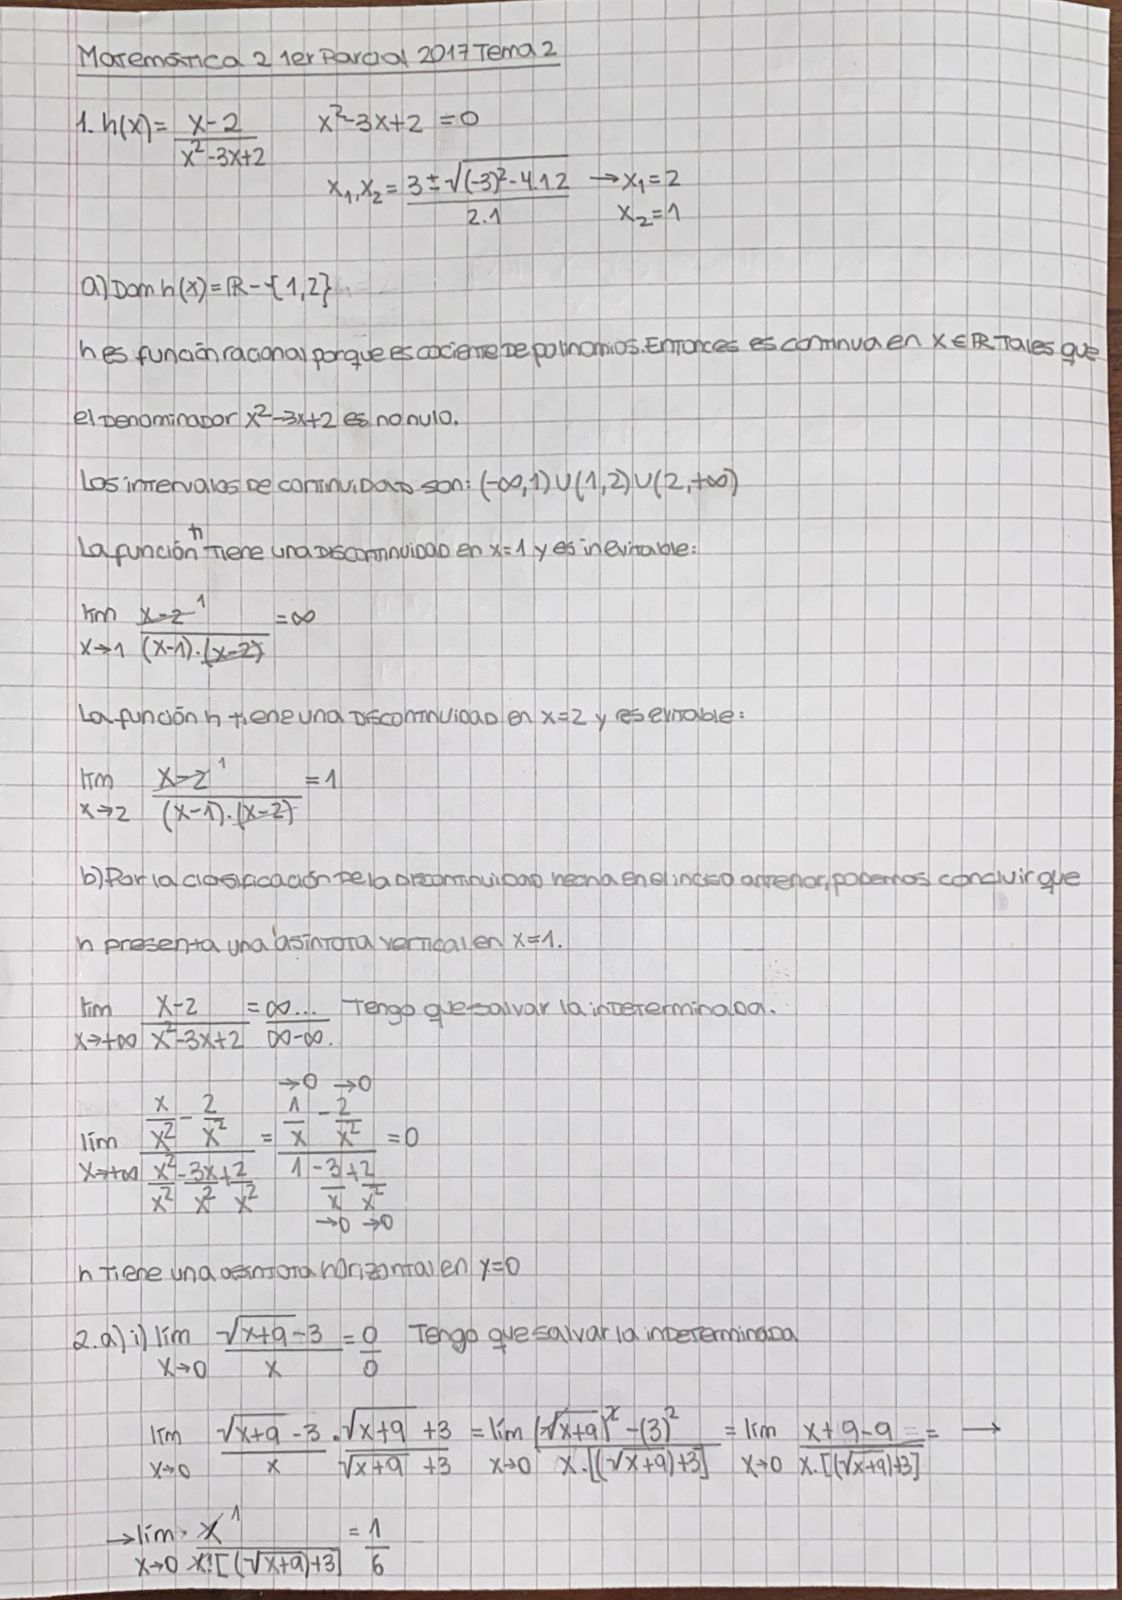 Matemática 2 1er Parcial 2017 Tema 2
1. h(x) = (x-2)/(x²-3x+2)   x²-3x+2 = 0
x₁,x₂ = (3 ± √((-3)²-4.1.2))/(2.1) → x₁=2
x₂=1
a) Dom h(x) = ℝ-{1,2}
h es función racional porque es cociente de polinomios. Entonces es continua en x ∈ ℝ tales que
el denominador x²-3x+2 es no nulo.
Los intervalos de continuidad son: (-∞,1)∪(1,2)∪(2,+∞)
La función h tiene una discontinuidad en x=1 y es inevitable:
lim x→1 (x-2)¹/((x-1).(x-2)) = ∞
La función h tiene una discontinuidad en x=2 y es evitable:
lim x→2 (x-2)¹/((x-1).(x-2)) = 1
b) Por la clasificación de la discontinuidad hecha en el inciso anterior, podemos concluir que
h presenta una asíntota vertical en x=1.
lim x→+∞ (x-2)/(x²-3x+2) = ∞.../∞-∞. Tengo que salvar la indeterminada.
→0 →0
lim x→+∞ (x/x² - 2/x²)/(x²/x² - 3x/x² + 2/x²) = (1/x - 2/x²)/(1 - 3/x + 2/x²) = 0
→0 →0
h tiene una asíntota horizontal en y=0
2. a) i) lím x→0 (√(x+9)-3)/x = 0/0 Tengo que salvar la indeterminada
lím x→0 (√(x+9)-3)/x . (√(x+9)+3)/(√(x+9)+3) = lím x→0 ((√(x+9))²-(3)²)/(x.[(√(x+9))+3]) = lím x→0 (x+9-9)/(x.[(√(x+9))+3]) = →
→ lím x→0 x¹/(x.[(√(x+9))+3]) = 1/6